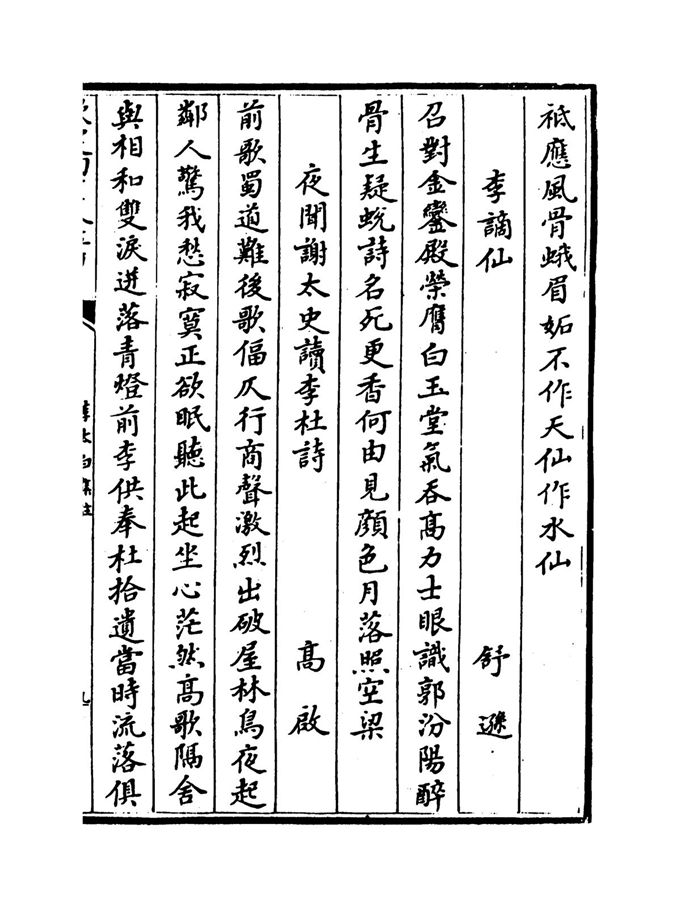 秪應風骨蛾眉妬不作天仙作水仙
李謫仙 舒遜
召對金鑾殿榮膺白玉堂氣吞髙力士眼識郭汾陽醉
骨生疑蛻詩名死更香何由見顔色月落照空梁
夜聞謝太史讀李杜詩 髙啟
前歌蜀道難後歌偪仄行商聲激烈出破屋林烏夜起
鄰人驚我愁寂寞正欲眠聽此起坐心茫然髙歌隔舍
與相和雙淚迸落青燈前李供奉杜拾遺當時流落俱
李太白集註
九